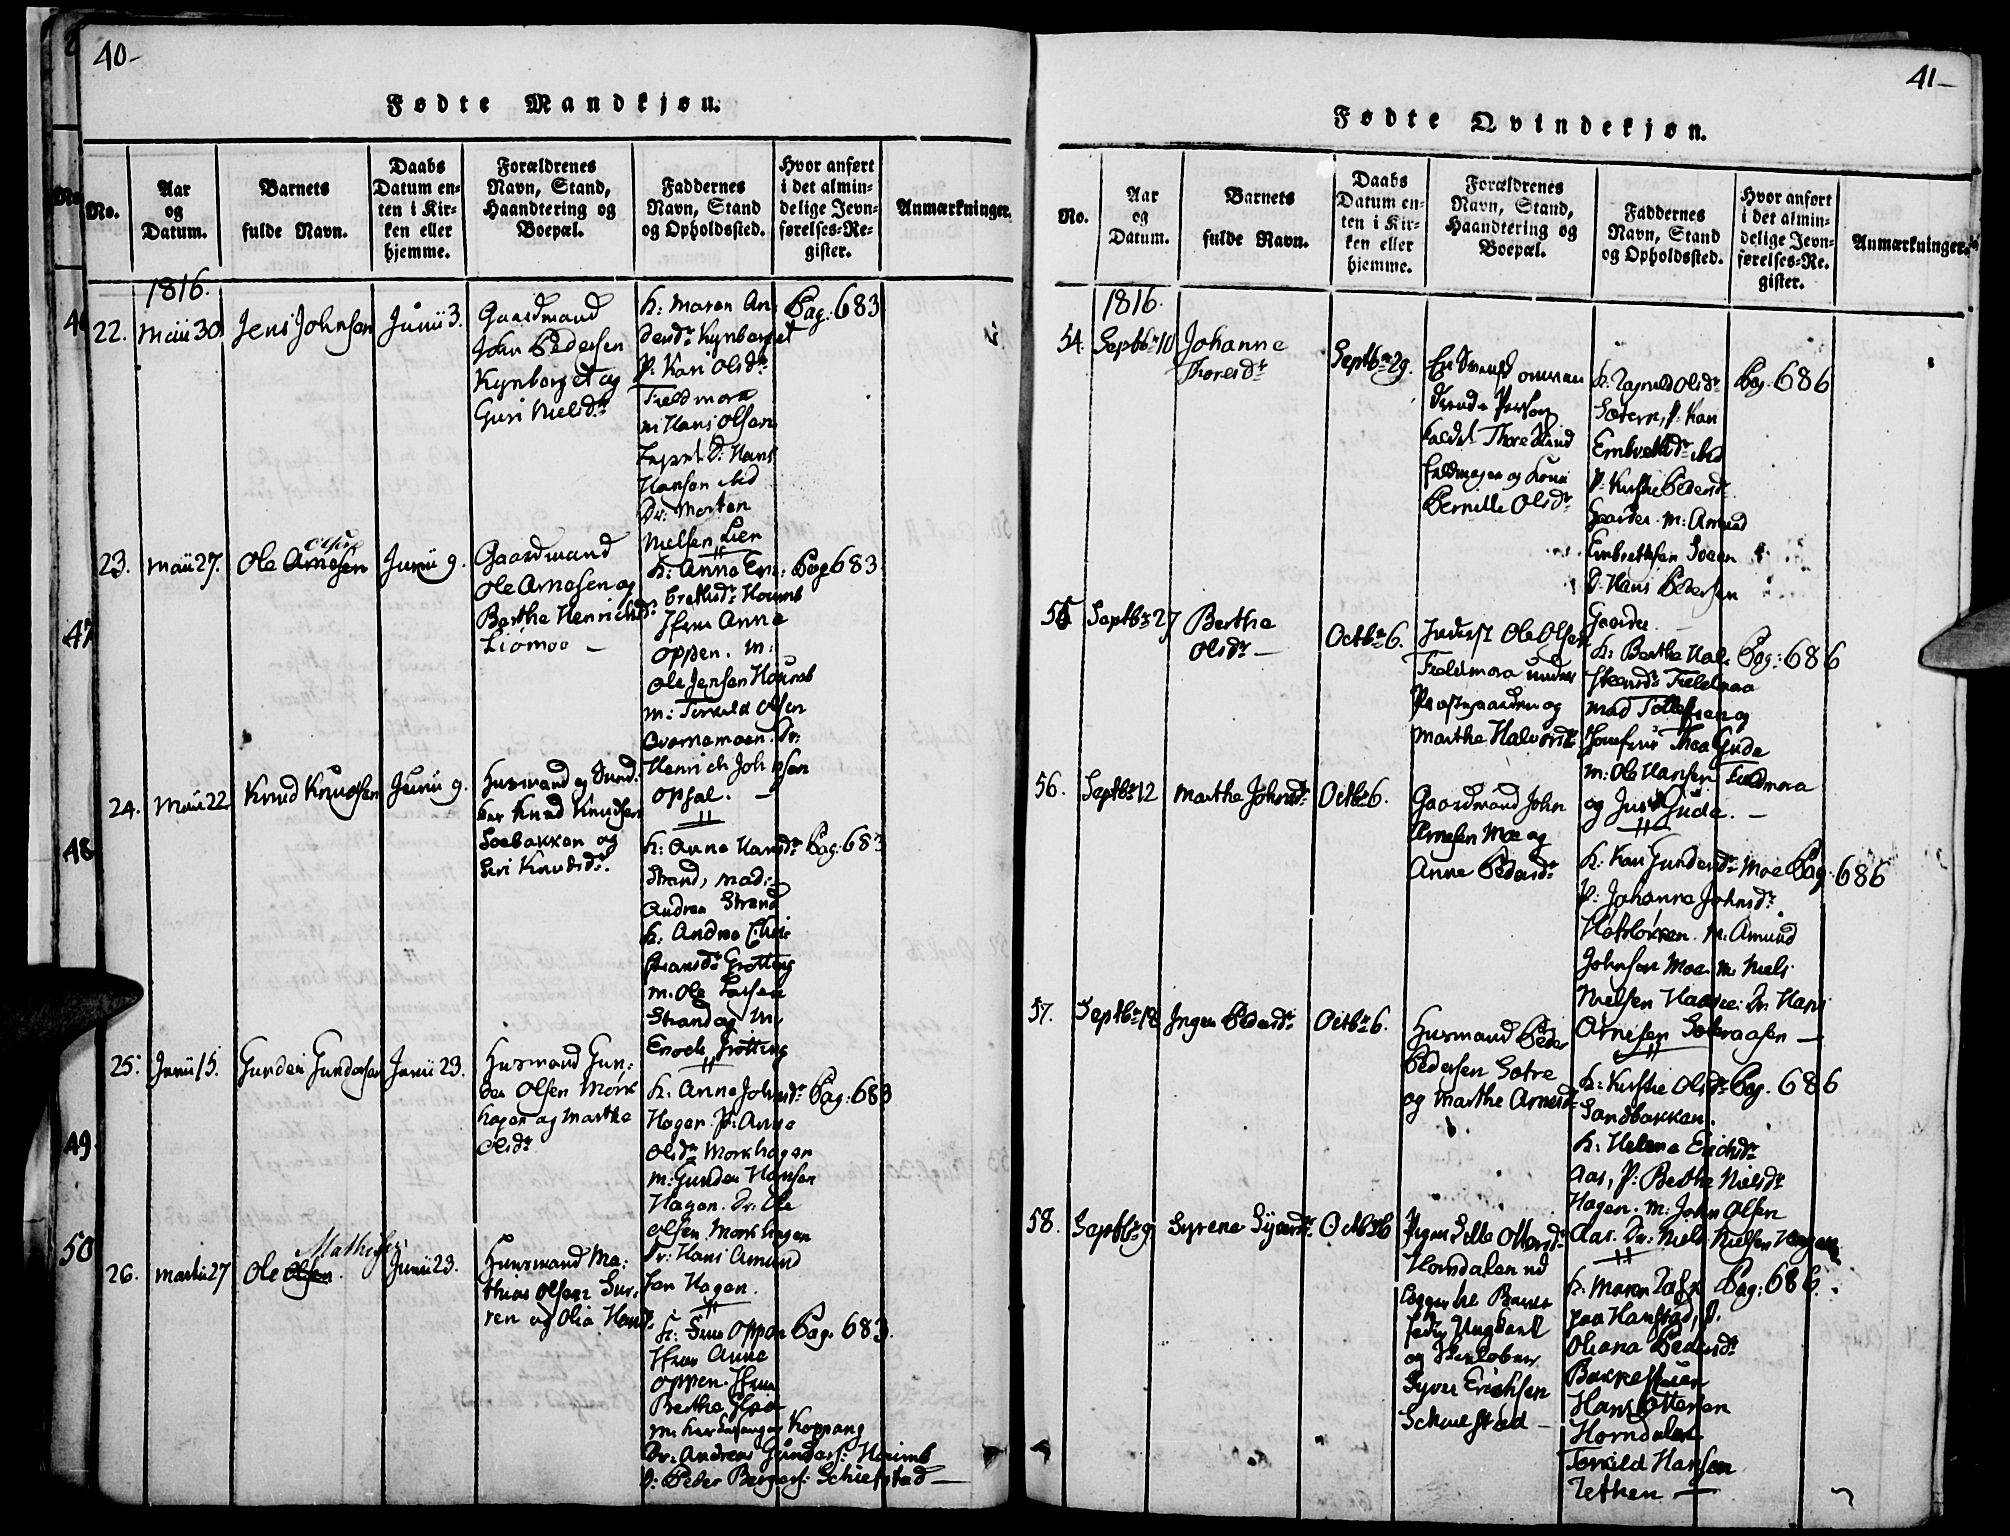 40-
Fødte Mandkjøn.
No.
Aar
og
Datum.
Barnets
fulde Navn.
Daabs
Datum en-
ten i Kir-
ken eller
hjemme.
Forældrenes
Navn, Stand,
Haandtering og
Boepæl.
Faddernes
Navn, Stand
og Opholdssted.
Hvor anført
i det almin-
delige Jevn-
førelses-Re-
gister.
Anmærkninger.
1816.
22.
Maii 30
Jens Johnsen
Junii 3.
Gaardmand
John Pedersen
Kynberget og
Guri Nielsdr
K: Maren An-
dersdr Kynberget
P: Kari Olsdr
Trældmora
M: Hans Olsen
D: Hans
Hansen ibid
Dr: Morten
Nielsen Lien
Pag: 683
23.
Maii 27.
Ole Arnesen
Olsen
Junii 9.
Gaardmand
Ole Arnesen og
Berthe Henrichsdr
Liømoe -
K: Anne Em-
bretsdr Houmb
Jfru Anne
Oppen. M:
Ole Jensen Houmb
M: Torkild Olsen
Evernemoen. Dr:
Henrich Johnsen
Opsal. -
Pag 683
24.
Maii 22
Knud Knudsen
Junii 9.
Husmand og Sund-
Knud Knudsen
Soebakken og
Siri Knudsdr.
K: Anne Hansdr
Strand, Mad:
Andrea Strand
K: Andrea Chri-
stiansdr Grøtting
M: Ole Larsen
Strand og M:
Enoch Grøtting
Pag: 683
25.
Junii 15.
Gunder Gundersen
Junii 23.
Husmand Gun-
der Olsen Mork-
hagen og Marthe
Olsdr
K: Anne Johnsdr
Hagen. P: Anne
Olsdr Morkhagen
M: Gunder Hansen
Hagen. Dr: Ole
Olsen Morkhagen
Dr: Hans Amund
sen Hagen.
Pag: 683
26.
Martii 27
Ole Olsen.
Mathisen
Junii 23.
Huusmand Ma-
thias Olsen
og Olia Hansdr
K: Oppen
Jfru Anne
Oppen. Jfru
Berthe
Koppang
Dr: Andreas Gunders: Houmb
D: Peder Bergers: Schiefstad -
Pag. 683.
47
48
49
50
41-
Fødte Qvindekjøn.
No.
Aar
og
Datum.
Barnets
fulde Navn.
Daabs
Datum en-
ten i Kir-
ken eller
hjemme.
Forældrenes
Navn, Stand,
Haandtering og
Boepæl.
Faddernes
Navn, Stand
og Opholdssted.
Hvor anført
i det almin-
delige Jevn-
førelses-Re-
gister.
Anmærkninger.
1816.
54.
Septbr 10
Johanne
Thoresdr
Septbr 29.
Person
kaldet Thore
og Kone
Pernille Olsdr
K: Ragnild Olsdr
P: Kari
Embretsdr ibid
P: Kirstie Pedersdr
Gaarder. M: Amund
Embretsen
D: Hans Pedersen
Gaarder
Pag: 686
55
Septbr 27
Berthe
Olsdr -
Octbr 6.
Inderst Ole Olsen
Trældmora under
Præstegaarden og
Marthe Halvorsdr
K: Berthe Hal-
Trældmora
Mad Tollefsen og
Jomfrue Thea Gude
M: Ole Hansen Trældmora
og Gude. -
Pag: 686
56.
Septbr 12
Marthe Johnsdr
Octbr 6.
Gaardmand John
Arnesen Moe og
Anne Pedersdr
K: Kari Gundersdr Moe
P: Johanne Johnsdr
M: Amund
Johnsen Moe. M: Niels
Nielsen Haaree. Dr: Hans
Arnesen -
Pag: 686
57.
Septbr 18
Inger Pedersdr
Octbr 6.
Husmand Peder
Pedersen Sætre
og Marthe Arnesdr
K: Kirstie Olsdr
Sandbakken.
K: Helene Erichsdr
Aas, P: Berthe Nielsdr
Hagen. M: John Olsen
Aas. Dr: Niels Nielsen Hagen
Pag. 686
58.
Septbr 9
Syrene Syversdr
Octbr 6
Pigen Sille Ottersdr
Horndalen ud-
lægger til Barne-
fader Ungkarl
og
Syver Erichsen
Schiefstad -
K: Maren
paa Hanstad, P:
Oleana Pedersdr
Bakkestuen
Hans Ottersen
Horndalen
Torkild Hansen
Tethen -
Pag: 686.